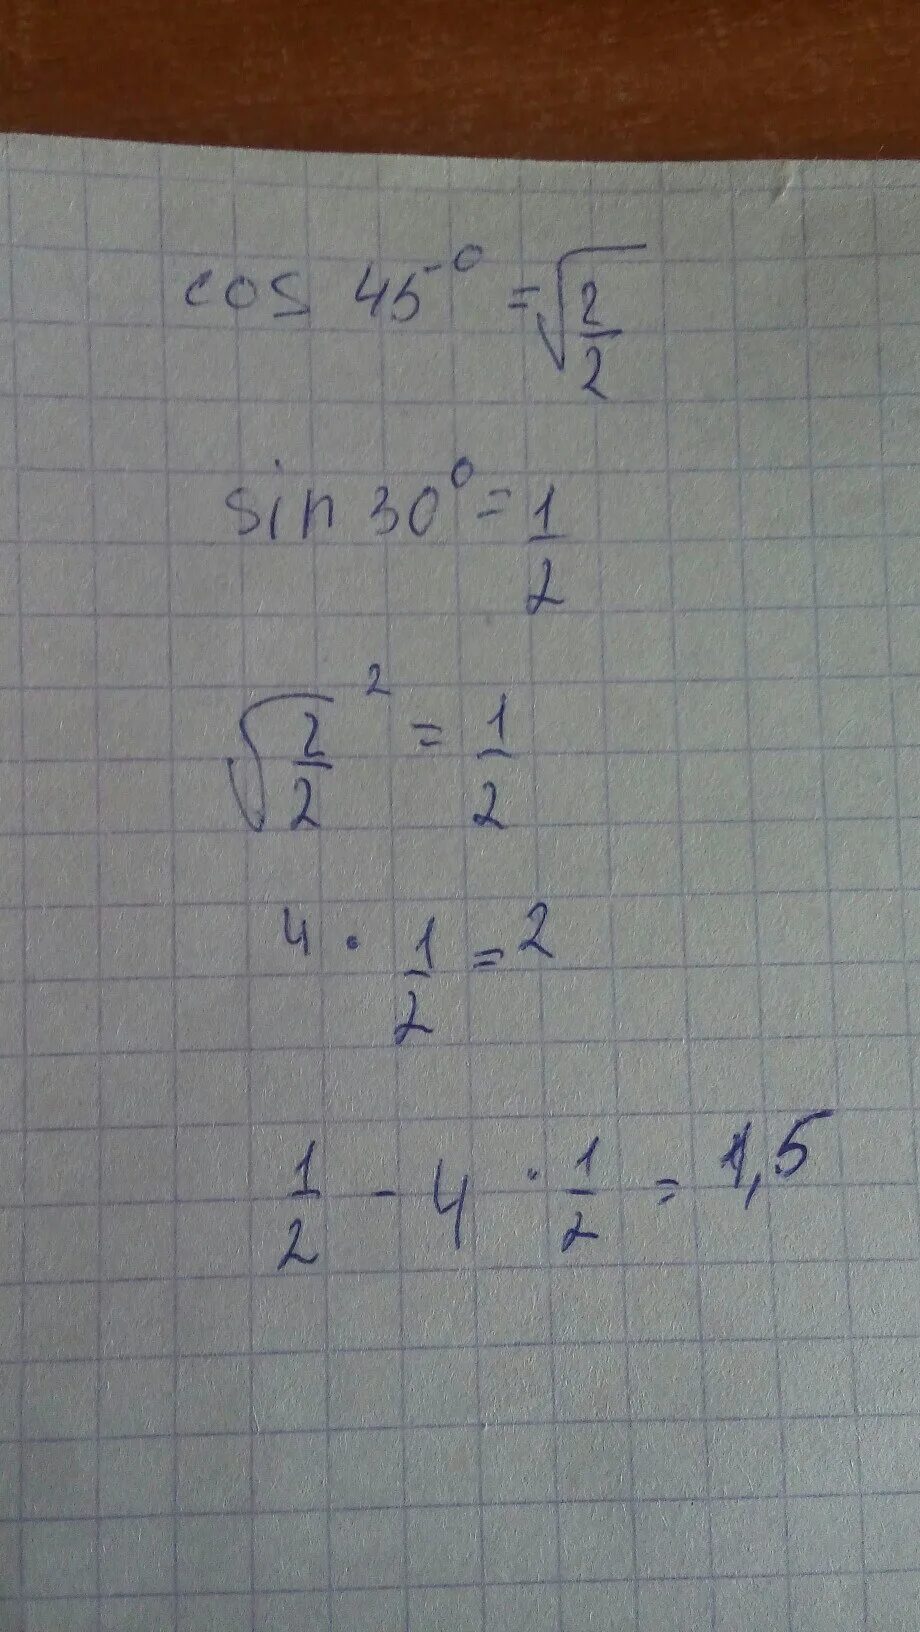 cos 45° = √2/2
sin 30° = 1/2
√2/2 ² = 1/2
4 · 1/2 = 2
1/2 - 4 · 1/2 = 1,5